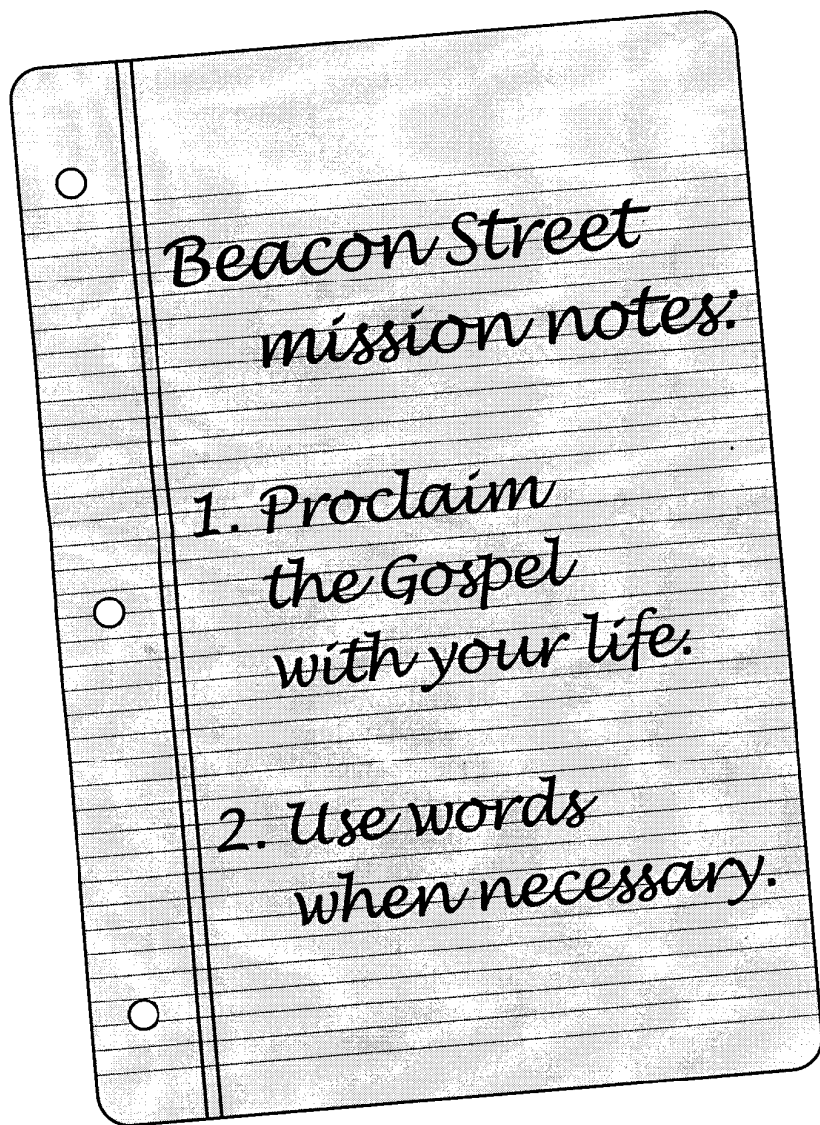 Beacon Street
mission notes:
1. Proclaim
the Gospel
with your life.
2. Use words
when necessary.